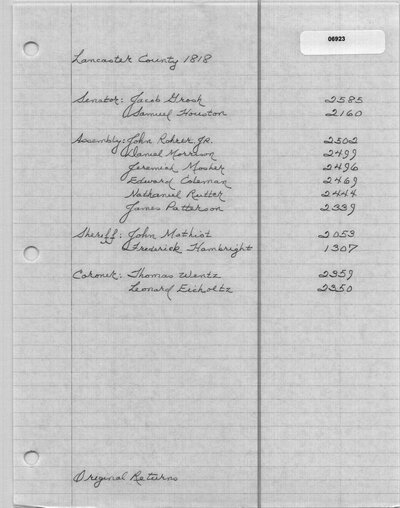 06923
Lancaster County 1818
Senator: Jacob Grosh 2585
Samuel Houston 2160
Assembly: John Rohrer Jr. 2502
Daniel Morrison 2499
Jeremiah Mosher 2496
Edward Coleman 2469
Nathaniel Rutter 2444
James Patterson 2339
Sheriff: John Mathiot 2053
Frederick Hambright 1307
Coroner: Thomas Wentz 2359
Leonard Eicholtz 2350
Original Returns